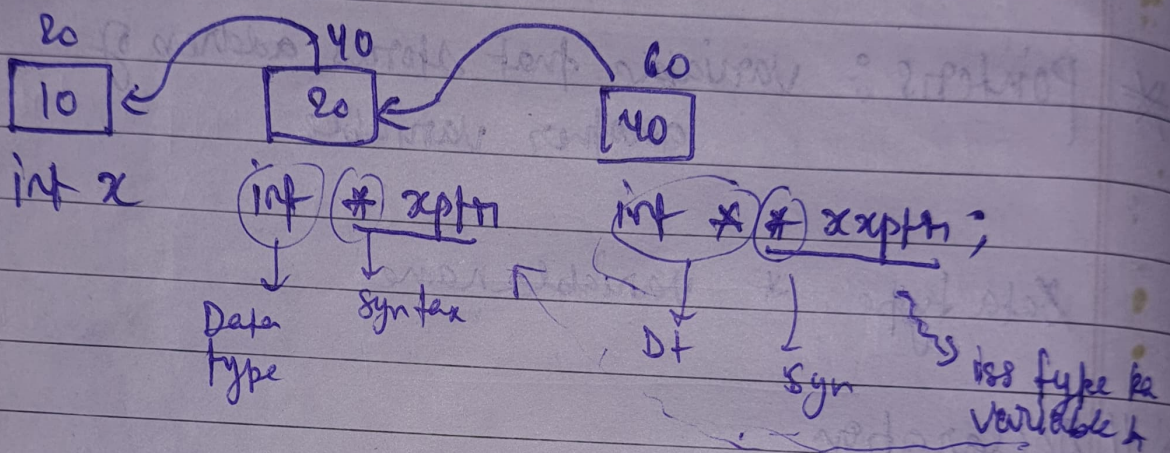 20 40 60
10 20 40
int x int * xptr int * * xxptr ;
Data type
Syntax
Dt
Syn
iss type ka
variable h